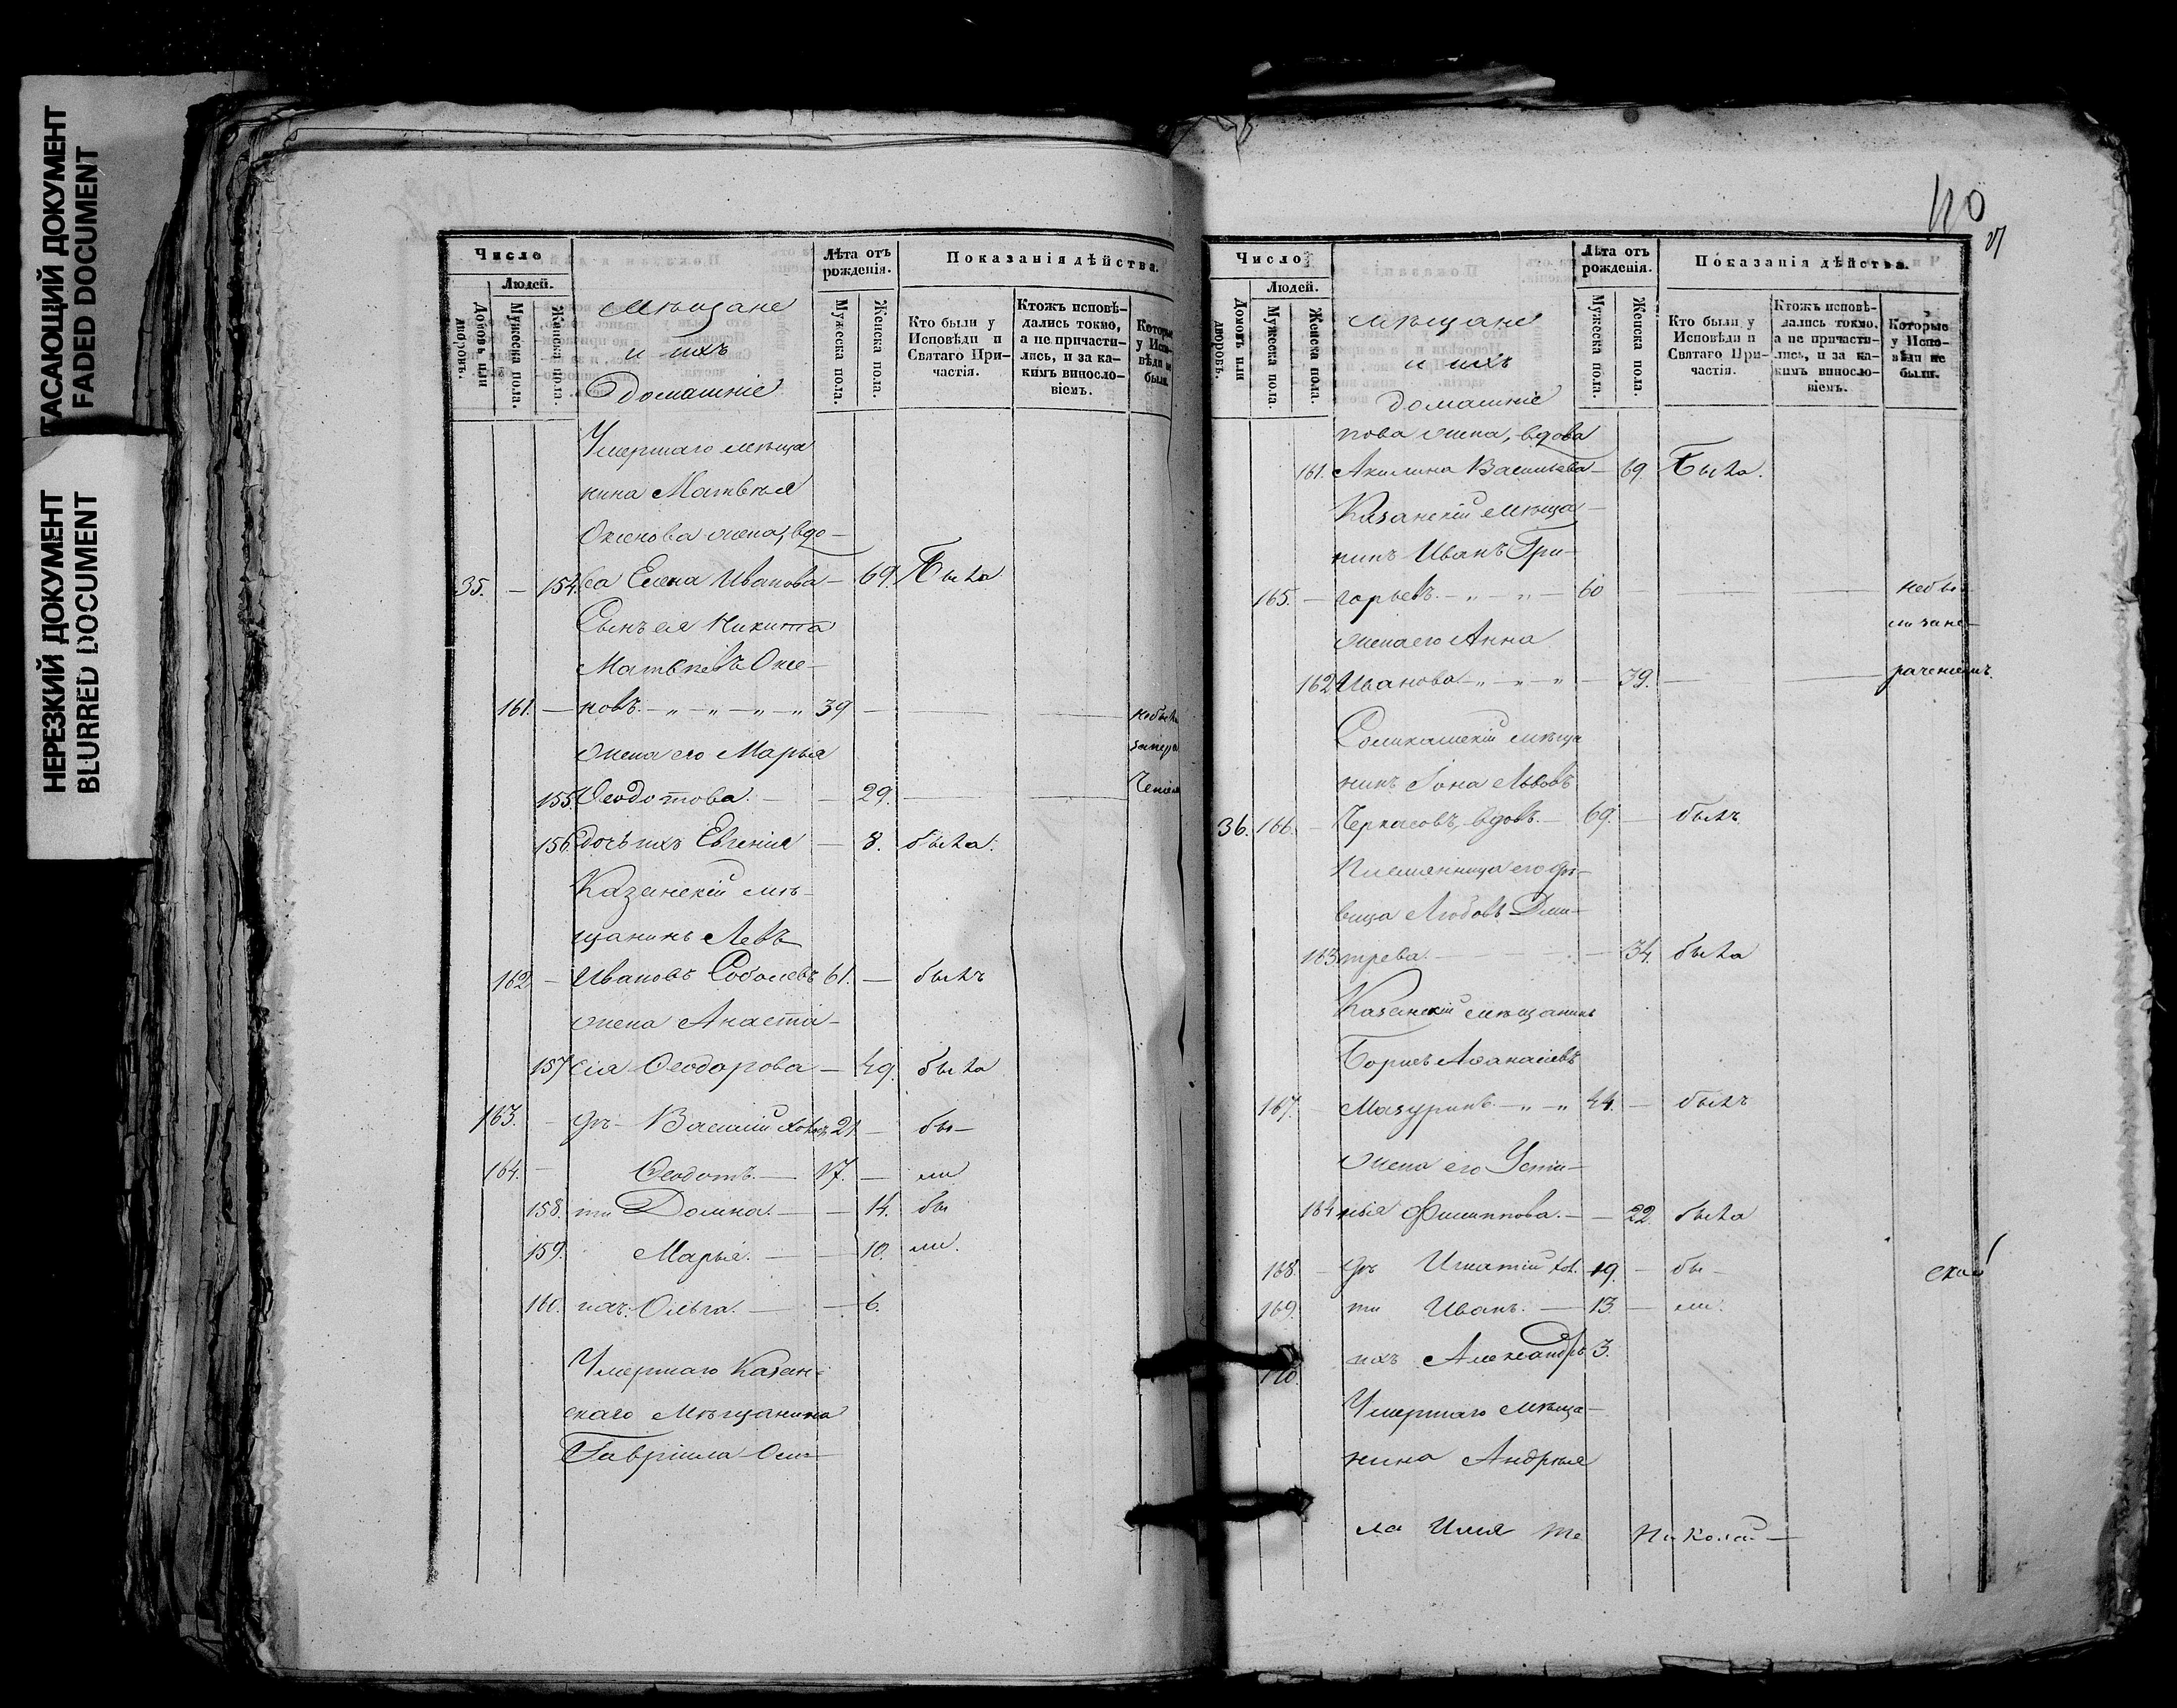 ГАСАЮЩИЙ ДОКУМЕНТ
FADED DOCUMENT
НЕРЕЗКИЙ ДОКУМЕНТ
BLURRED DOCUMENT
Число
Людей.
Домовъ или дворовъ.
Мужеска пола.
Женска пола.
Мѣщане
и ихъ
Домашніе
Лѣта отъ рожденія.
Мужеска пола.
Женска пола.
Показанія дѣйства.
Кто были у Исповѣди и Святаго Причастія.
Ктожъ исповѣдались токмо, а не причастились, и за какимъ винословіемъ.
Которые у Исповѣди не были.
Умершаго мѣща
нина Матвѣя
жена, вдо-
35. — 154. ва Елена Иванова — 69. Была
Сынъ ея Никита
Матвѣевъ
161. — новъ. — „ — „ — „ — „ 39 — — — небылъ
жена его Марья
155. Ѳеодотова. — — 29. — —
156. дочь ихъ Евгенія — 8. была.
Казанскій мѣ-
щанинъ Левъ
162 — Ивановъ Соболевъ 61. — былъ
жена Анаста-
157 сія Ѳеодорова — 49. была
163. — дѣ- Василій хол. 21. — бы-
164. — Ѳеодотъ. — 17. — ли
158. ти Домна. — — 14. бы
159. Марья. — — 10. ли.
160. ихъ: Ольга. — — 6.
Умершаго Казан-
скаго Мѣщанина
Гавріила Оси-
110
Число
Людей.
Домовъ или дворовъ.
Мужеска пола.
Женска пола.
мѣщане
и ихъ
домашніе
Лѣта отъ рожденія.
Мужеска пола.
Женска пола.
Показанія дѣйства.
Кто были у Исповѣди и Святаго Причастія.
Ктожъ исповѣдались токмо, а не причастились, и за какимъ винословіемъ.
Которые у Исповѣди не были.
пова жена, вдова
161. Акилина Васильева — 69. Была.
Казанскій мѣща-
нинъ Иванъ Гри-
165. — горьевъ. — „ — „ — 60 — — — небы
жена его Анна ли за не-
162 Иванова. — „ — „ — „ — 39. — — раченіемъ.
мѣща
нинъ Іона Львовъ
36. 166. — Черкасовъ, вдовъ. — 69. — былъ
Племянница его дѣ-
вица Любовь Дми-
163 трева. — — — — 34. была
Казанскій мѣщанинъ
Борисъ Аѳанасіевъ
167. — Мазуринъ. — „ — „ 44. — былъ
жена его Усти-
164 нья Филиппова. — — 22. была
168. — дѣ Игнатій хол. 19. — бы-
169. ти Иванъ. — 13 — ли.
170. ихъ Александръ 3.
Умершаго мѣща-
нина Андрея
ла Илія Николай —